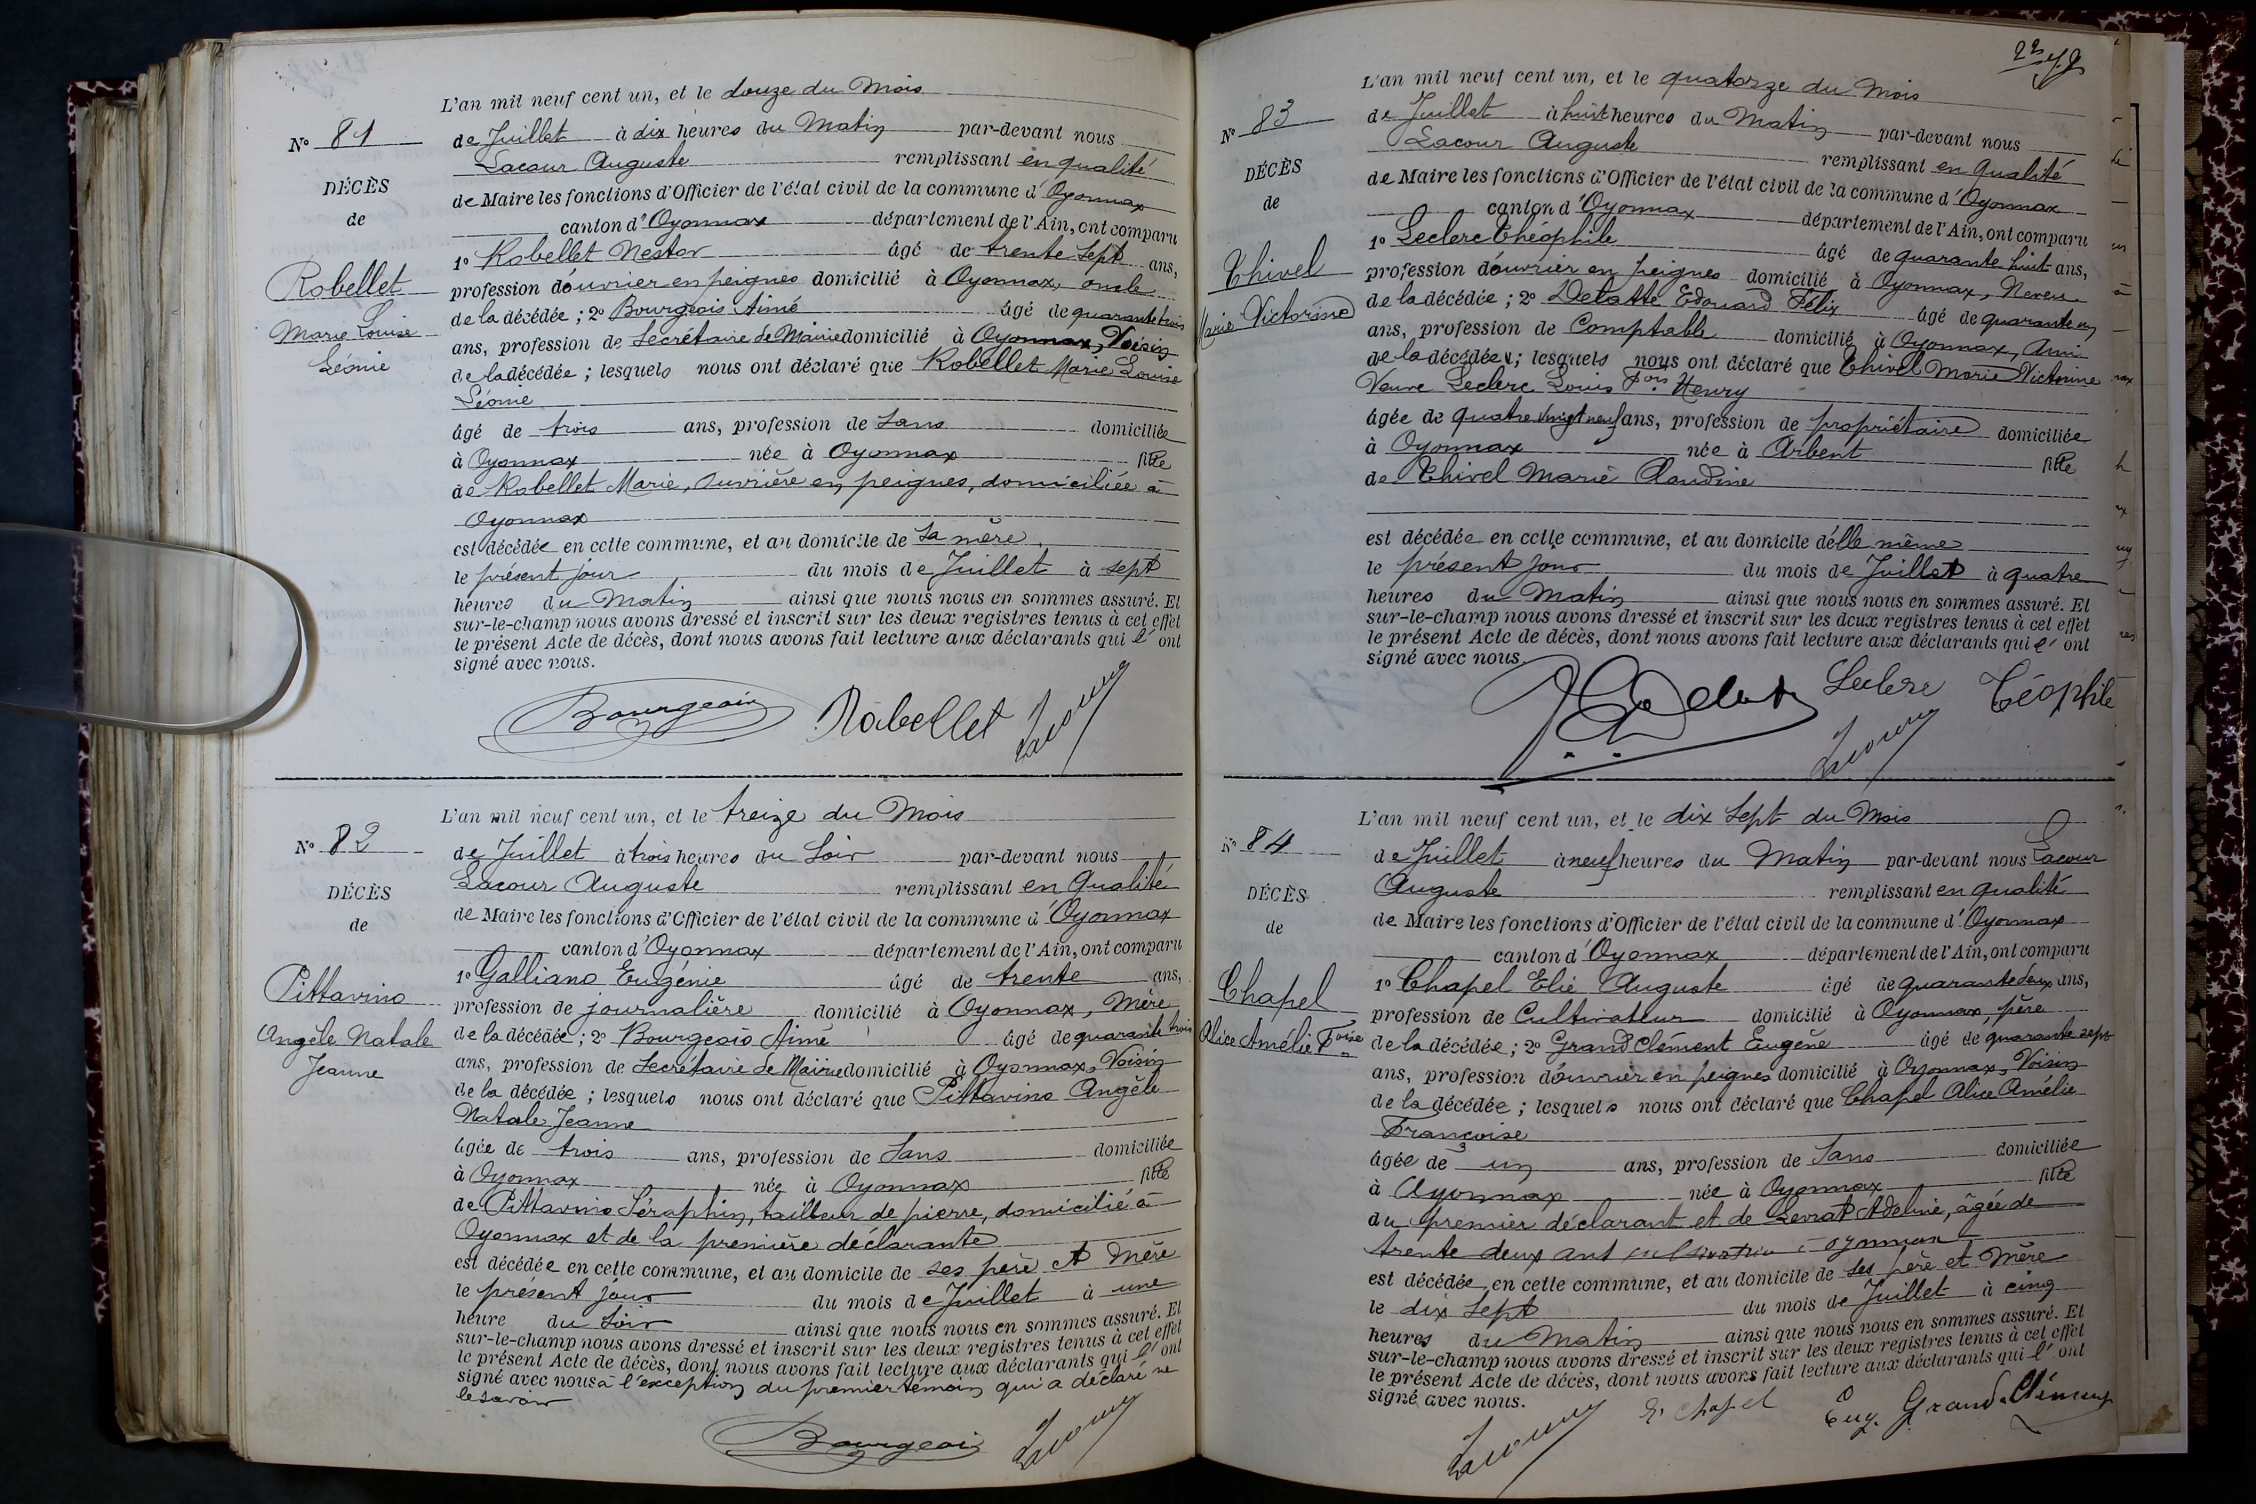 L'an mil neuf cent un, et le douze du Mois
N° 81
de Juillet à dix heures du Matin par-devant nous
Lacour Auguste remplissant en qualité
DÉCÈS
de Maire les fonctions d'Officier de l'état civil de la commune d'Oyonnax
de
canton d'Oyonnax département de l'Ain, ont comparu
1° Robellet Nestor âgé de trente sept ans,
Robellet
profession d'ouvrier en peignes domicilié à Oyonnax, oncle
de la décédée ; 2° Bourgeois Aimé âgé de quarante trois
Marie Louise
ans, profession de Secrétaire de Mairie domicilié à Oyonnax, Voisin
Léonie
de la décédée ; lesquels nous ont déclaré que Robellet Marie Louise
Léonie
âgé de trois ans, profession de Sans domiciliée
à Oyonnax née à Oyonnax fille
de Robellet Marie, Ouvrière en peignes, domiciliée à
Oyonnax
est décédée en cette commune, et au domicile de Sa mère,
le présent jour du mois de Juillet à sept
heures du Matin ainsi que nous nous en sommes assuré. Et
sur-le-champ nous avons dressé et inscrit sur les deux registres tenus à cet effet
le présent Acte de décès, dont nous avons fait lecture aux déclarants qui l'ont
signé avec nous.
Bourgeois Robellet Lacour
L'an mil neuf cent un, et le treize du Mois
N° 82
de Juillet à trois heures du Soir par-devant nous
Lacour Auguste remplissant en Qualité
DÉCÈS
de Maire les fonctions d'Officier de l'état civil de la commune d'Oyonnax
de
canton d'Oyonnax département de l'Ain, ont comparu
1° Galliano Eugénie âgé de trente ans,
Pittavino
profession de journalière domicilié à Oyonnax, Mère
Angèle Natale
de la décédée ; 2° Bourgeois Aimé âgé de quarante trois
Jeanne
ans, profession de Secrétaire de Mairie domicilié à Oyonnax, Voisin
de la décédée ; lesquels nous ont déclaré que Pittavino Angèle
Natale Jeanne
âgée de trois ans, profession de Sans domiciliée
à Oyonnax née à Oyonnax fille
de Pittavino Séraphin, tailleur de pierre, domicilié à
Oyonnax et de la première déclarante
est décédée en cette commune, et au domicile de ses père et Mère
le présent jour du mois de Juillet à une
heure du Soir ainsi que nous nous en sommes assuré. Et
sur-le-champ nous avons dressé et inscrit sur les deux registres tenus à cet effet
le présent Acte de décès, dont nous avons fait lecture aux déclarants qui l'ont
signé avec nous à l'exception du premier témoin qui a déclaré ne
le savoir
Bourgeois Lacour
L'an mil neuf cent un, et le quatorze du Mois
N° 83
de Juillet à huit heures du Matin par-devant nous
Lacour Auguste remplissant en Qualité
DÉCÈS
de Maire les fonctions d'Officier de l'état civil de la commune d'Oyonnax
de
canton d'Oyonnax département de l'Ain, ont comparu
1° Leclerc Théophile âgé de quarante huit ans,
Thivel
profession d'ouvrier en peignes domicilié à Oyonnax, Neveu
Marie Victorine
de la décédée ; 2° Delatte Edouard Félix âgé de quarante un
ans, profession de Comptable domicilié à Oyonnax, Ami
de la décédée ; lesquels nous ont déclaré que Thivel Marie Victorine
Veuve Leclerc Louis Fois Henry
âgée de quatre vingt neuf ans, profession de propriétaire domiciliée
à Oyonnax née à Arbent fille
de Thivel Marie Claudine
est décédée en cette commune, et au domicile d'elle même
le présent jour du mois de Juillet à quatre
heures du Matin ainsi que nous nous en sommes assuré. Et
sur-le-champ nous avons dressé et inscrit sur les deux registres tenus à cet effet
le présent Acte de décès, dont nous avons fait lecture aux déclarants qui l'ont
signé avec nous.
Leclerc Téophile
Lacour
L'an mil neuf cent un, et le dix Sept du Mois
N° 84
de Juillet à neuf heures du Matin par-devant nous Lacour
Auguste remplissant en qualité
DÉCÈS
de Maire les fonctions d'Officier de l'état civil de la commune d'Oyonnax
de
canton d'Oyonnax département de l'Ain, ont comparu
1° Chapel Elie Auguste âgé de quarante deux ans,
Chapel
profession de Cultivateur domicilié à Oyonnax, père
Alice Amélie Foise
de la décédée ; 2° Grand Clément Eugène âgé de quarante sept
ans, profession d'ouvrier en peignes domicilié à Oyonnax, Voisin
de la décédée ; lesquels nous ont déclaré que Chapel Alice Amélie
Françoise
âgée de un ans, profession de Sans domiciliée
à Oyonnax née à Oyonnax fille
du premier déclarant et de Levrat Adeline, âgée de
trente deux ans cultivatrice à Oyonnax
est décédée en cette commune, et au domicile de ses père et Mère
le dix sept du mois de Juillet à cinq
heures du Matin ainsi que nous nous en sommes assuré. Et
sur-le-champ nous avons dressé et inscrit sur les deux registres tenus à cet effet
le présent Acte de décès, dont nous avons fait lecture aux déclarants qui l'ont
signé avec nous.
Lacour E. Chapel Eug. Grand Clément